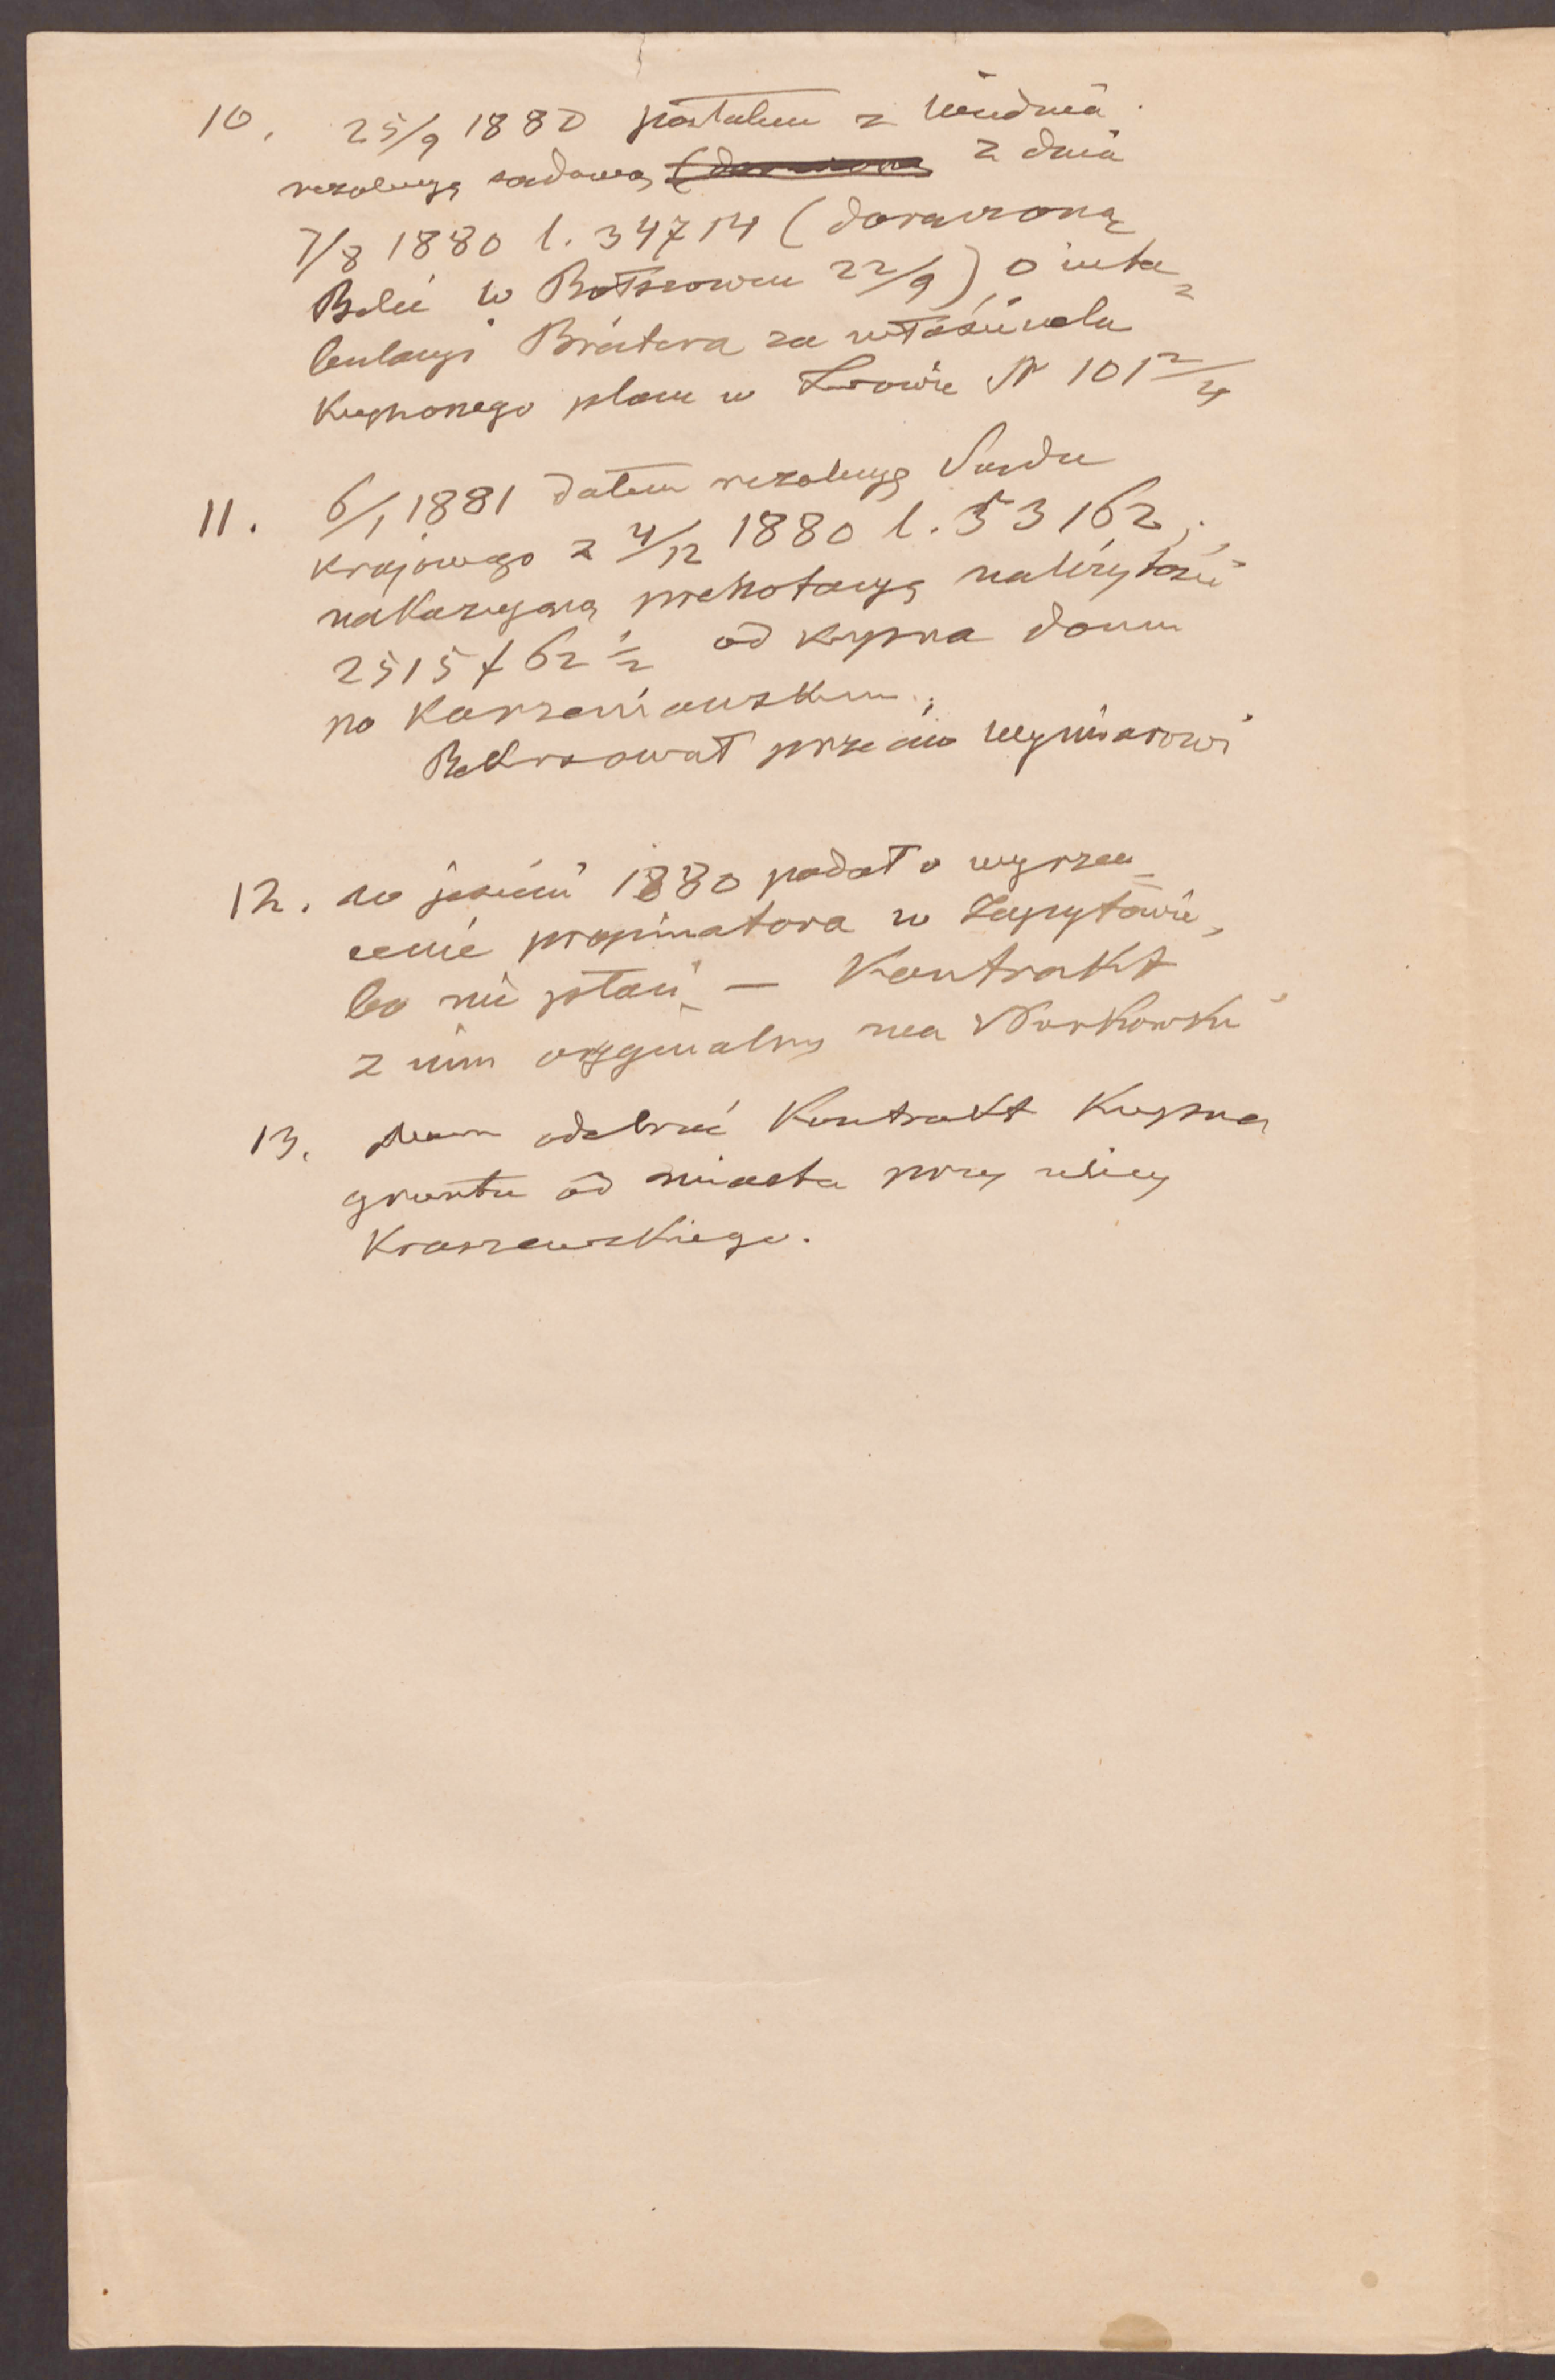 10. 25/9 1880 posłałem z Wiednia
rezolucyę sądową z dnia
7/8 1880 l. 34714 (doręczoną
Belci w Bołszowcu 22/9) o inta=
bulacyi Brätera za właściciela
kupionego placu w Lwowie N 101 2/4
11. 6/1 1881 dałem rezolucyę Sądu
krajowego z 4/12 1880 l. 53162;
nakazującą prenotacyą należytości
2515 f 62 1/2 od kupna domu
po Karszeniauskim;
Rekurował przeciw wymiarowi
12. w jesieni 1880 podał o wyrzu=
cenie propinatora w Zapytowie,
bo nie płaci – Kontrakt
z nim oryginalny ma Workowski
13. Mam odebrać Kontrakt Kupna
gruntu od miasta przy ulicy
Kraszewskiego.